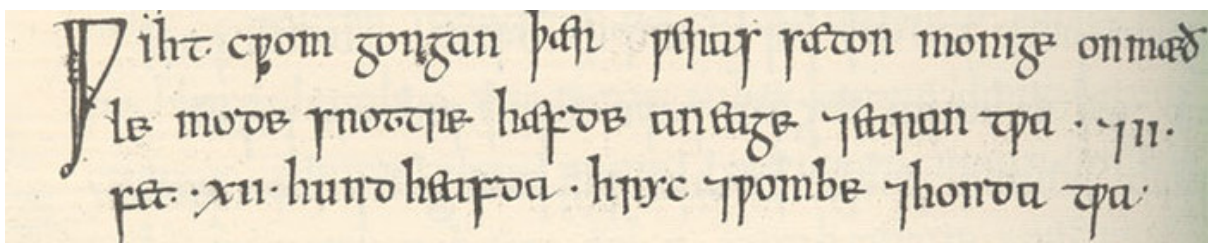 Ƿiht cƿom gongan þær ƿeras sæton monige onmæð
le mode snottre hæfde an eage ⁊earan tƿa · ⁊ii·
fet · xii· hund heafda · hrẏc ⁊ƿombe ⁊honda tƿa·